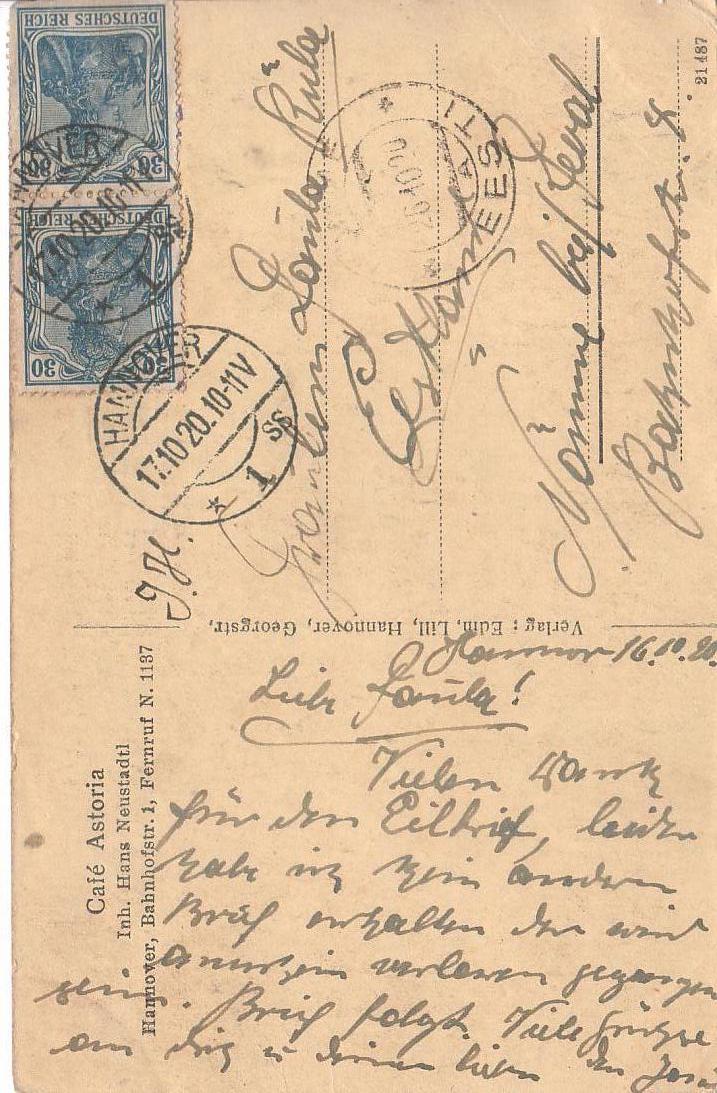 DEUTSCHES REICH
30
DEUTSCHES REICH
30 30
HANNOVER
17.10.20.10-11V
* 1 Ss
HANNOVER
17.10.20.10-11V
* 1 Ss
EESTI
20.10.20
21487
Fräulein Paula
Estland
Nõmme bei Reval
Bahnhofstr. 8.
Verlag: Edm. Lill, Hannover, Georgstr,
Café Astoria
Inh. Hans Neustadtl
Hannover, Bahnhofstr. 1, Fernruf N. 1137
Hannover 16.10.20
Liebe Paula!
Vielen Dank
für den Eilbrief, leider
habe ich kein anderen
Brief erhalten der wird
verloren gegangen
sein. Brief folgt. Viele Grüsse
an dich u deinen lieben